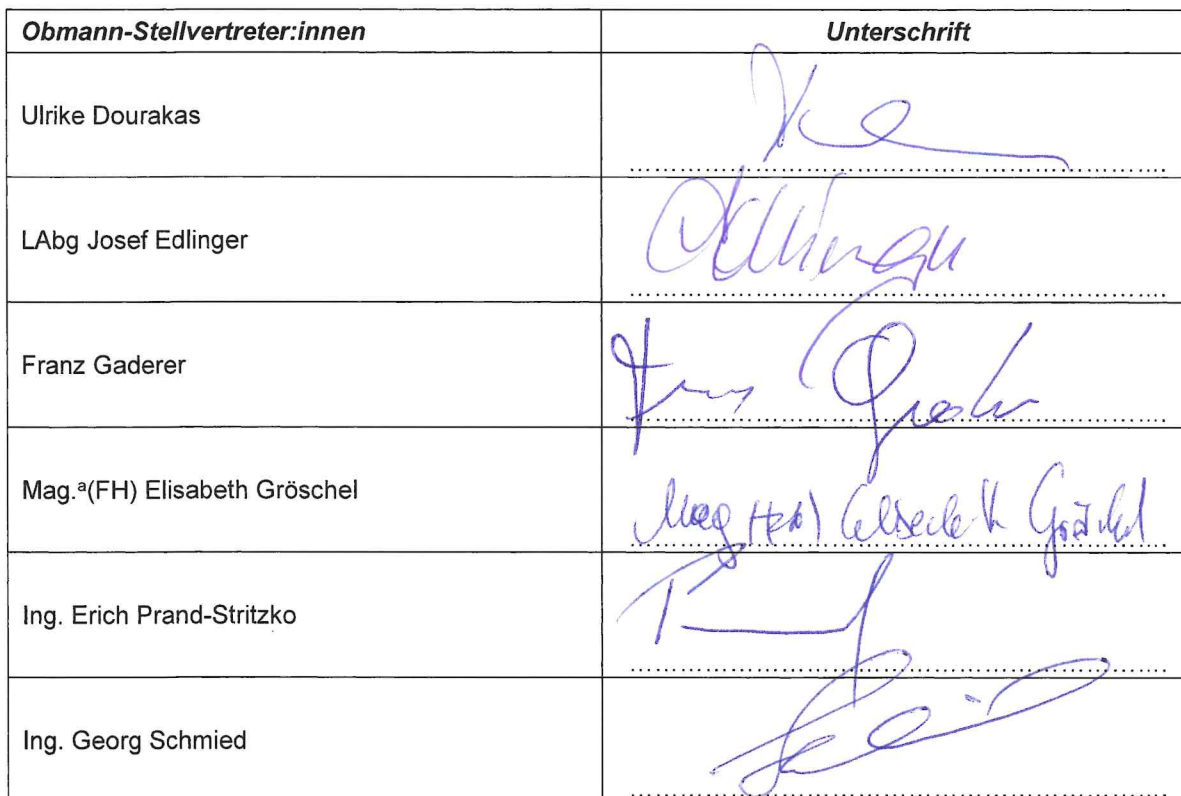 Obmann-Stellvertreter:innen Unterschrift
Ulrike Dourakas
LAbg Josef Edlinger
Franz Gaderer
Mag.ª(FH) Elisabeth Gröschel Mag (FH) Elisabeth Gröschel
Ing. Erich Prand-Stritzko
Ing. Georg Schmied